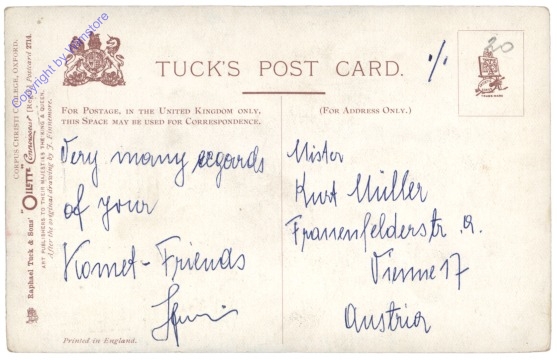 TUCK'S POST CARD.
FOR POSTAGE, IN THE UNITED KINGDOM ONLY,
THIS SPACE MAY BE USED FOR CORRESPONDENCE.
(FOR ADDRESS ONLY.)
Very many regards
of your
Komet-Friends
Mister
Kurt Müller
Frauenfelderstr
Vienne 17
Austria
Printed in England.
CORPUS CHRISTI COLLEGE, OXFORD.
"OILETTE" "Connoisseur" [Regd.] Postcard 2714.
Raphael Tuck & Sons'
ART PUBLISHERS TO THEIR MAJESTIES THE KING & QUEEN.
After the original drawing by J. Fullwood.
TRADE MARK
80
Copyright by